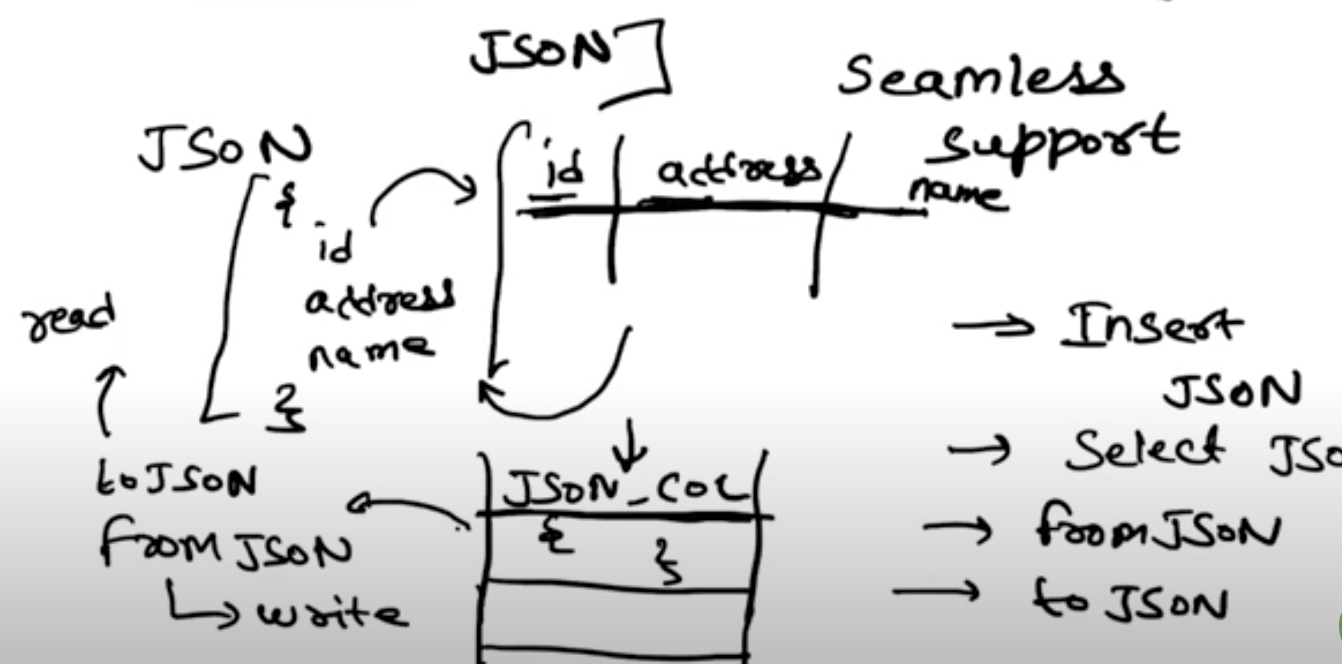 JSON
Seamless
support
JSON
id address name
{
id
address
name
}
read
toJSON
fromJSON
write
JSON_COL
{ }
Insert
JSON
Select JSO
fromJSON
toJSON